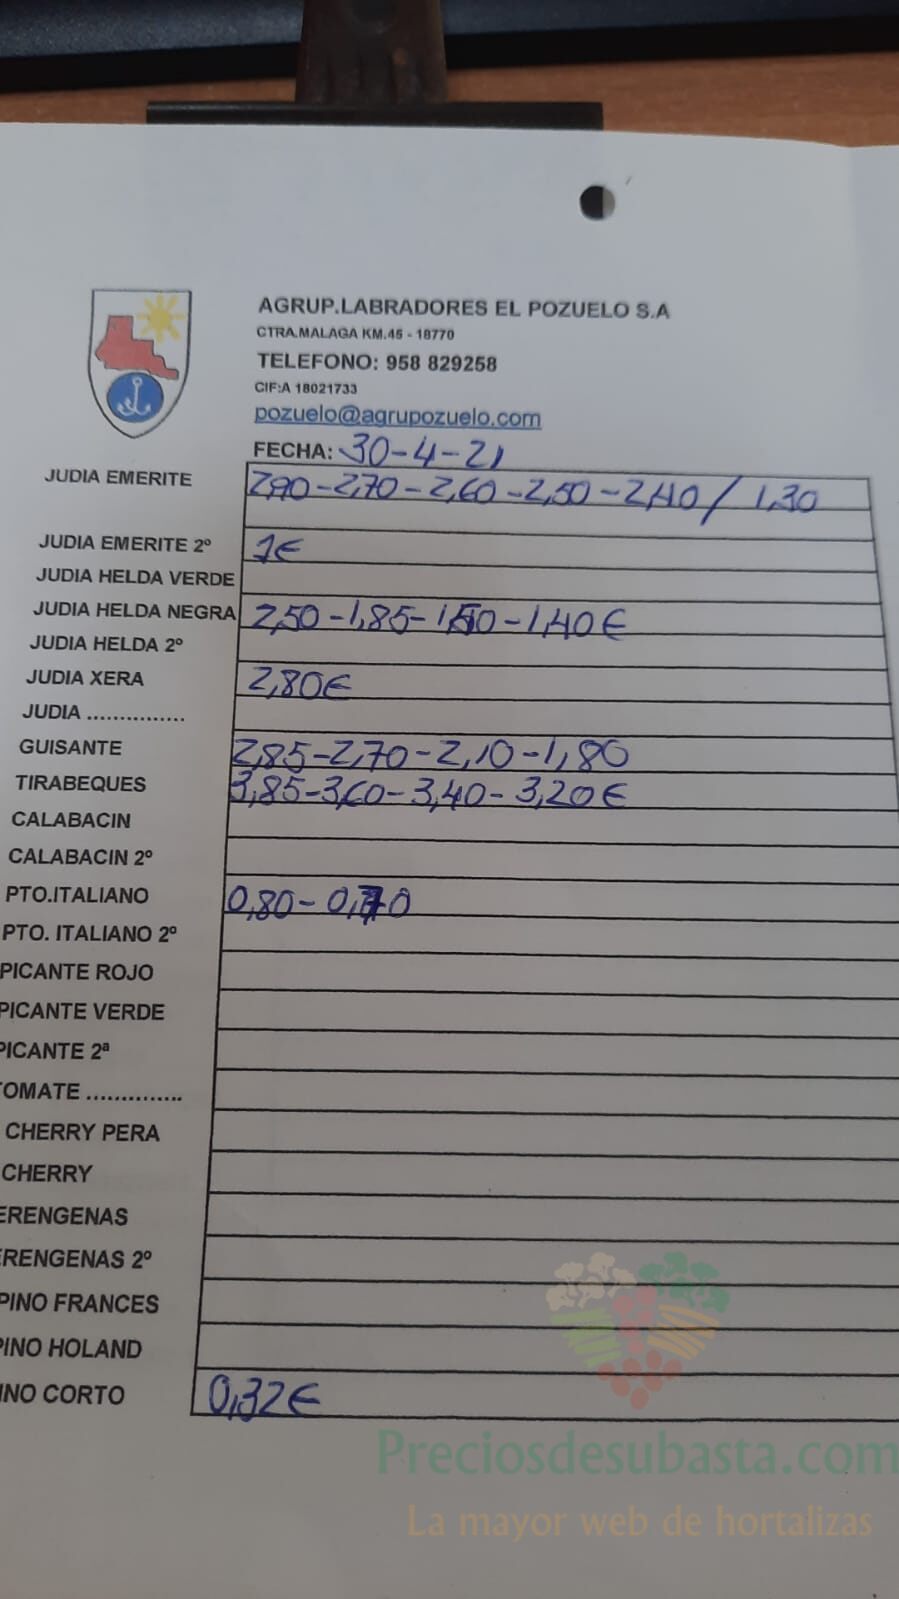 AGRUP.LABRADORES EL POZUELO S.A
CTRA.MALAGA KM.45 - 18770
TELEFONO: 958 829258
CIF:A 18021733
pozuelo@agrupozuelo.com
FECHA: 30-4-21
JUDIA EMERITE 2,90-2,70-2,60-2,50-2,40/ 1,30
JUDIA EMERITE 2º 1€
JUDIA HELDA VERDE
JUDIA HELDA NEGRA 2,50-1,85-1,50-1,40€
JUDIA HELDA 2º
JUDIA XERA 2,80€
JUDIA ...............
GUISANTE 2,85-2,70-2,10-1,80
TIRABEQUES 3,85-3,60-3,40-3,20€
CALABACIN
CALABACIN 2º
PTO.ITALIANO 0,80-0,70
PTO. ITALIANO 2º
PICANTE ROJO
PICANTE VERDE
PICANTE 2ª
TOMATE ..............
CHERRY PERA
CHERRY
ERENGENAS
ERENGENAS 2º
PINO FRANCES
PINO HOLAND
INO CORTO 0,32€
Preciosdesubasta.com
La mayor web de hortalizas